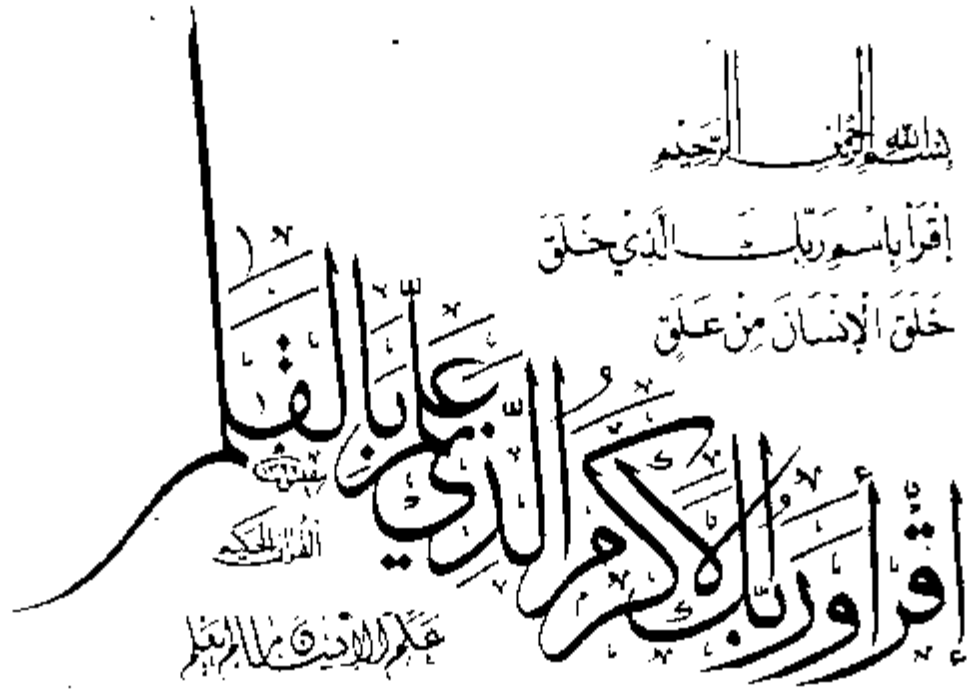 بِسْمِ اللهِ الرَّحْمٰنِ الرَّحِيْمِ
اِقْرَأْ بِاسْمِ رَبِّكَ الَّذِيْ خَلَقَ
خَلَقَ الْاِنْسَانَ مِنْ عَلَقٍ
اِقْرَأْ وَرَبُّكَ الْاَكْرَمُ الَّذِيْ عَلَّمَ بِالْقَلَمِ
القرآن الحكيم
عَلَّمَ الْاِنْسَانَ مَا لَمْ يَعْلَمْ